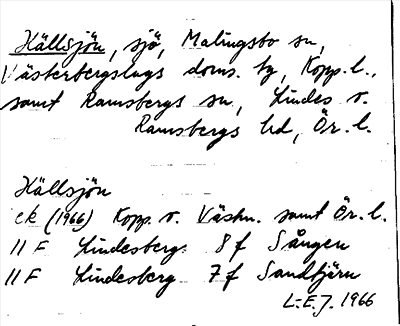 Hällsjön, sjö, Malingsbo sn,
Västerbergslags doms. tg, Kopp. l.,
samt Ramsbergs sn, Lindes o.
Ramsbergs hd, Ör. l.
Hällsjön
ek (1966) Kopp. o. Västm. samt Ör. l.
11 F Lindesberg 8 f Sången
11 F Lindesberg 7 f Sandtjärn
L.E.J. 1966